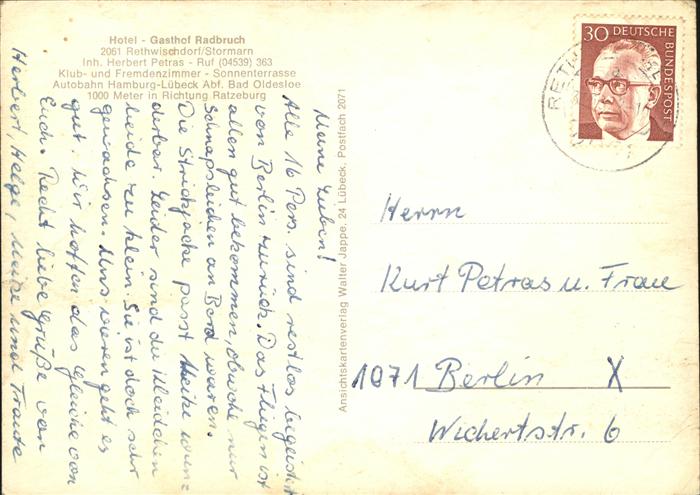 Hotel - Gasthof Radbruch
2061 Rethwischdorf/Stormarn
Inh. Herbert Petras - Ruf (04539) 363
Klub- und Fremdenzimmer - Sonnenterrasse
Autobahn Hamburg-Lübeck Abf. Bad Oldesloe
1000 Meter in Richtung Ratzeburg
Meine Lieben!
Alle 16 Pers. sind restlos begeistert
von Berlin zurück. Das Fliegen ist
allen gut bekommen, obwohl nur
Schnapsleichen an Bord waren.
Die Strickjacke passt Heike wun-
derbar. Leider sind die Kleidchen
beide zu klein. Sie ist doch sehr
gewachsen. Uns waren geht es
gut. Wir hoffen das Gleiche von
Euch. Recht liebe Grüße von
Herbert, Helga, Heike und Traute
Ansichtskartenverlag Walter Jappe, 24 Lübeck, Postfach 2071
30 DEUTSCHE
BUNDESPOST
RETH
Herrn
Kurt Petras u. Frau
1071 Berlin X
Wichertstr. 6